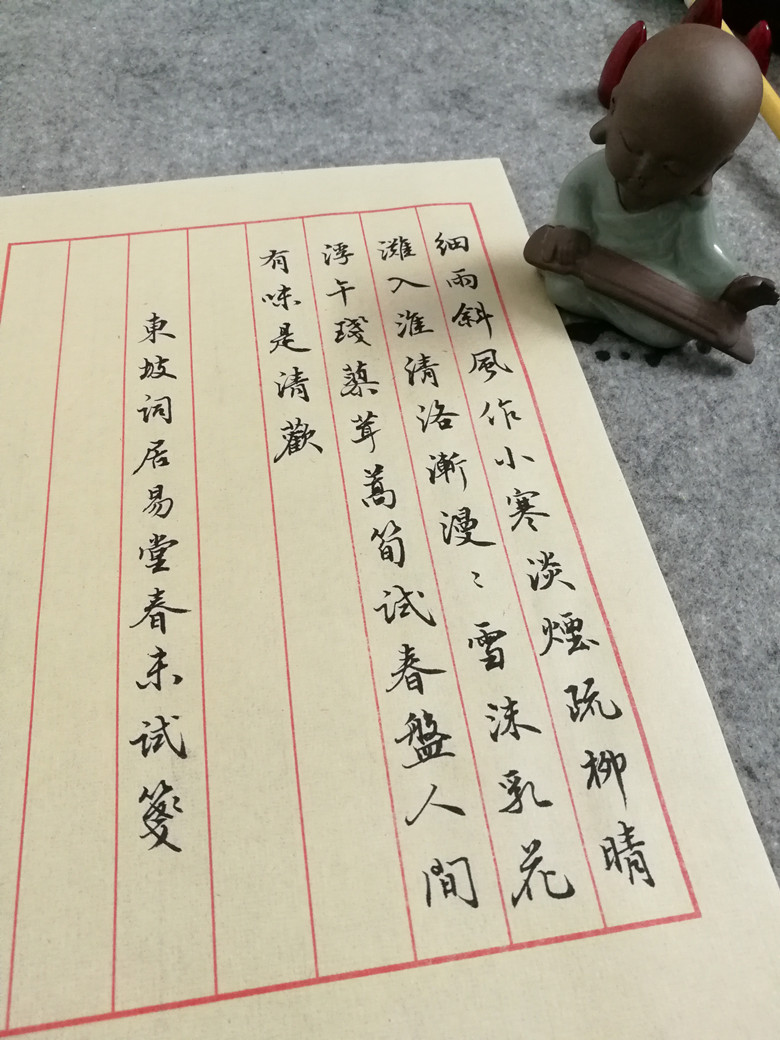 細雨斜風作小寒淡煙疏柳晴
灘入淮清洛漸漫〻雪沫乳花
浮午琖蓼茸蒿筍試春盤人間
有味是清歡
東坡詞居易堂春末試箋